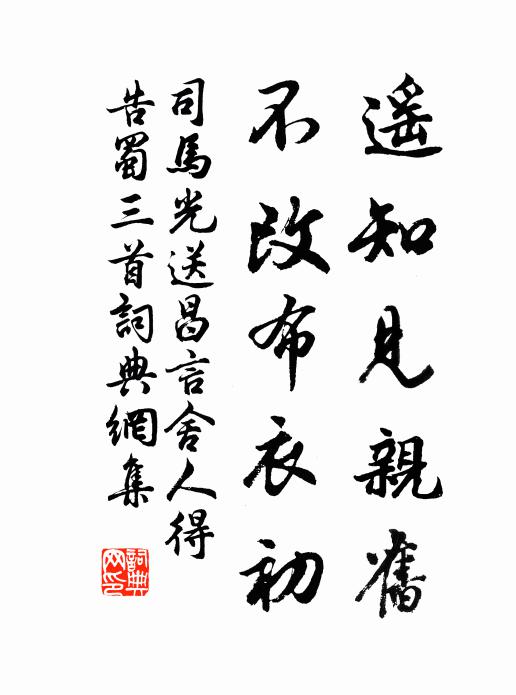 遥知見親舊
不改布衣初
司馬光送昌言舍人得
告蜀三首詞典網集
詞典網印